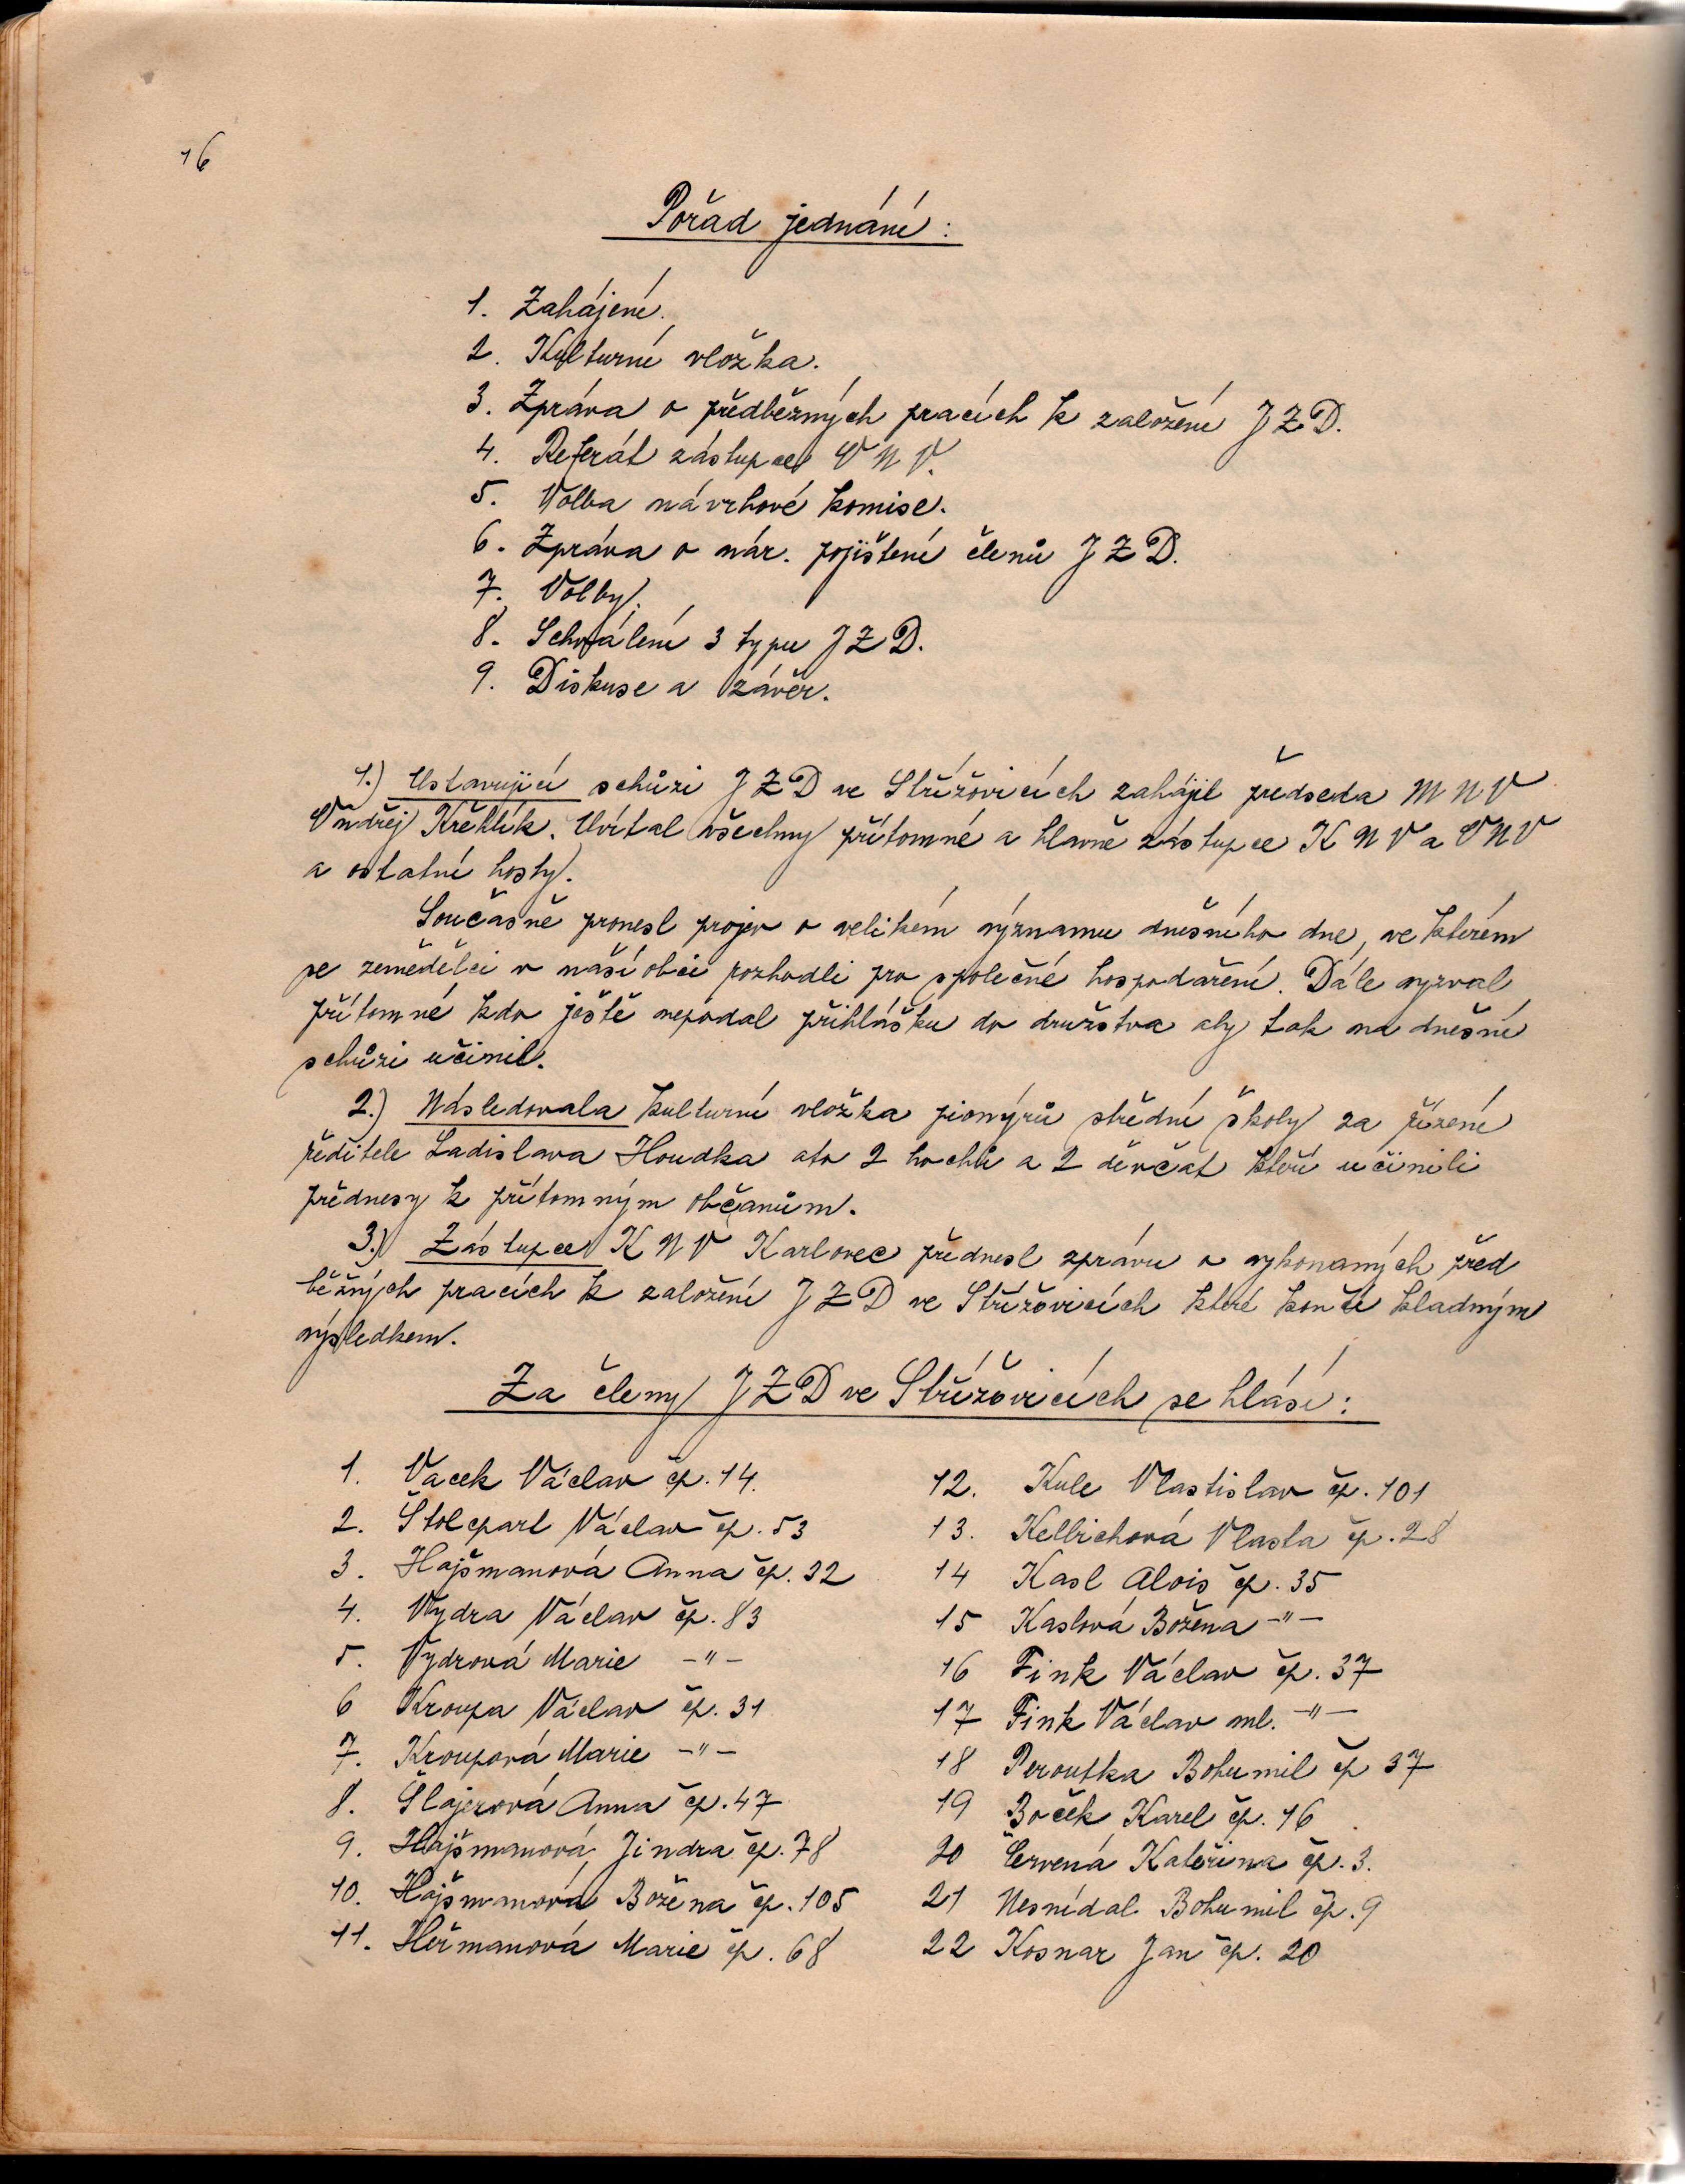 16
Pořad jednání:
1. Zahájení.
2. Kulturní vložka.
3. Zpráva o předběžných pracích k založení JZD.
4. Referát zástupce ONV.
5. Volba návrhové komise.
6. Zpráva o nár. pojištění členů JZD.
7. Volby.
8. Schválení 3 typu JZD.
9. Diskuse a závěr.
1.) Ustavující schůzi JZD ve Střížovicích zahájil předseda MNV
Ondřej Křehlík. Uvítal všechny přítomné a hlavně zástupce KNV a ONV
a ostatní hosty.
Současně pronesl projev o velikém významu dnešního dne, ve kterém
se zemědělci v naší obci rozhodli pro společné hospodaření. Dále vyzval
přítomné kdo ještě nepodal přihlášku do družstva aby tak na dnešní
schůzi učinil.
2.) Následovala kulturní vložka pionýrů střední školy za řízení
ředitele Ladislava Houdka ato 2 hochů a 2 děvčat kteří učinili
přednesy k přítomným občanům.
3.) Zástupce KNV Karlovec přednesl zprávu o vykonaných před
běžných pracích k založení JZD ve Střížovicích které končí kladným
výsledkem.
Za členy JZD ve Střížovicích se hlásí:
1. Vacek Václav čp. 14.
2. Štolcparl Václav čp. 53
3. Hajšmanová Anna čp. 32
4. Vydra Václav čp. 83
5. Vydrová Marie -"-
6 Kroupa Václav čp. 31
7. Kroupová Marie -"-
8. Šlajerová Anna čp. 47
9. Hajšmanová Jindra čp. 78
10. Hajšmanová Božena čp. 105
11. Heřmanová Marie čp. 68
12. Kule Vlastislav čp. 101
13. Kellrichová Vlasta čp. 28
14 Kasl Alois čp. 35
15 Kaslová Božena -"-
16 Fink Václav čp. 37
17 Fink Václav ml. -"-
18 Peroutka Bohumil čp 37
19 Boček Karel čp. 16
20 Červená Kateřina čp. 3.
21 Nesnídal Bohumil čp. 9
22 Kosnar Jan čp. 20